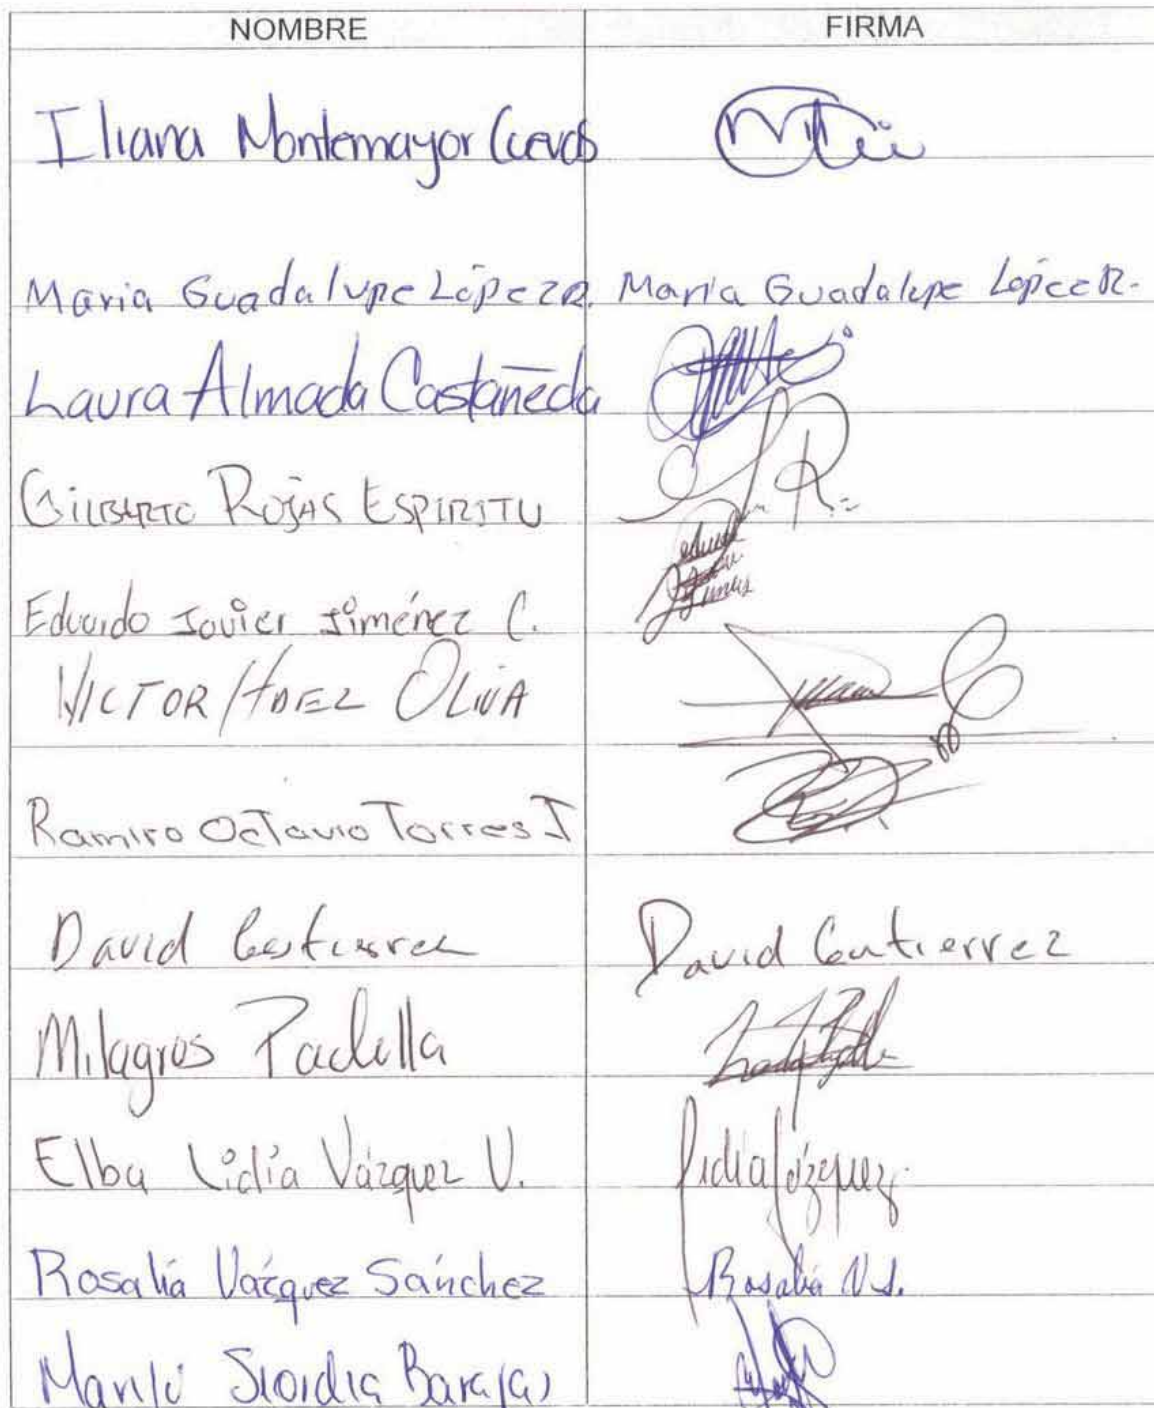 NOMBRE FIRMA
Iliana Montemayor Cuevas
Maria Guadalupe López R. Maria Guadalupe López R.
Laura Almada Castañeda
GILBERTO ROJAS ESPIRITU
Eduardo Javier Jiménez C.
VICTOR HDEZ OLIVA
Ramiro Octavio Torres J
David Gutierrez David Gutierrez
Milagros Padilla
Elba Lidia Vázquez V. Lidia Vázquez
Rosalía Vázquez Sánchez Rosalía V.S.
Barajas